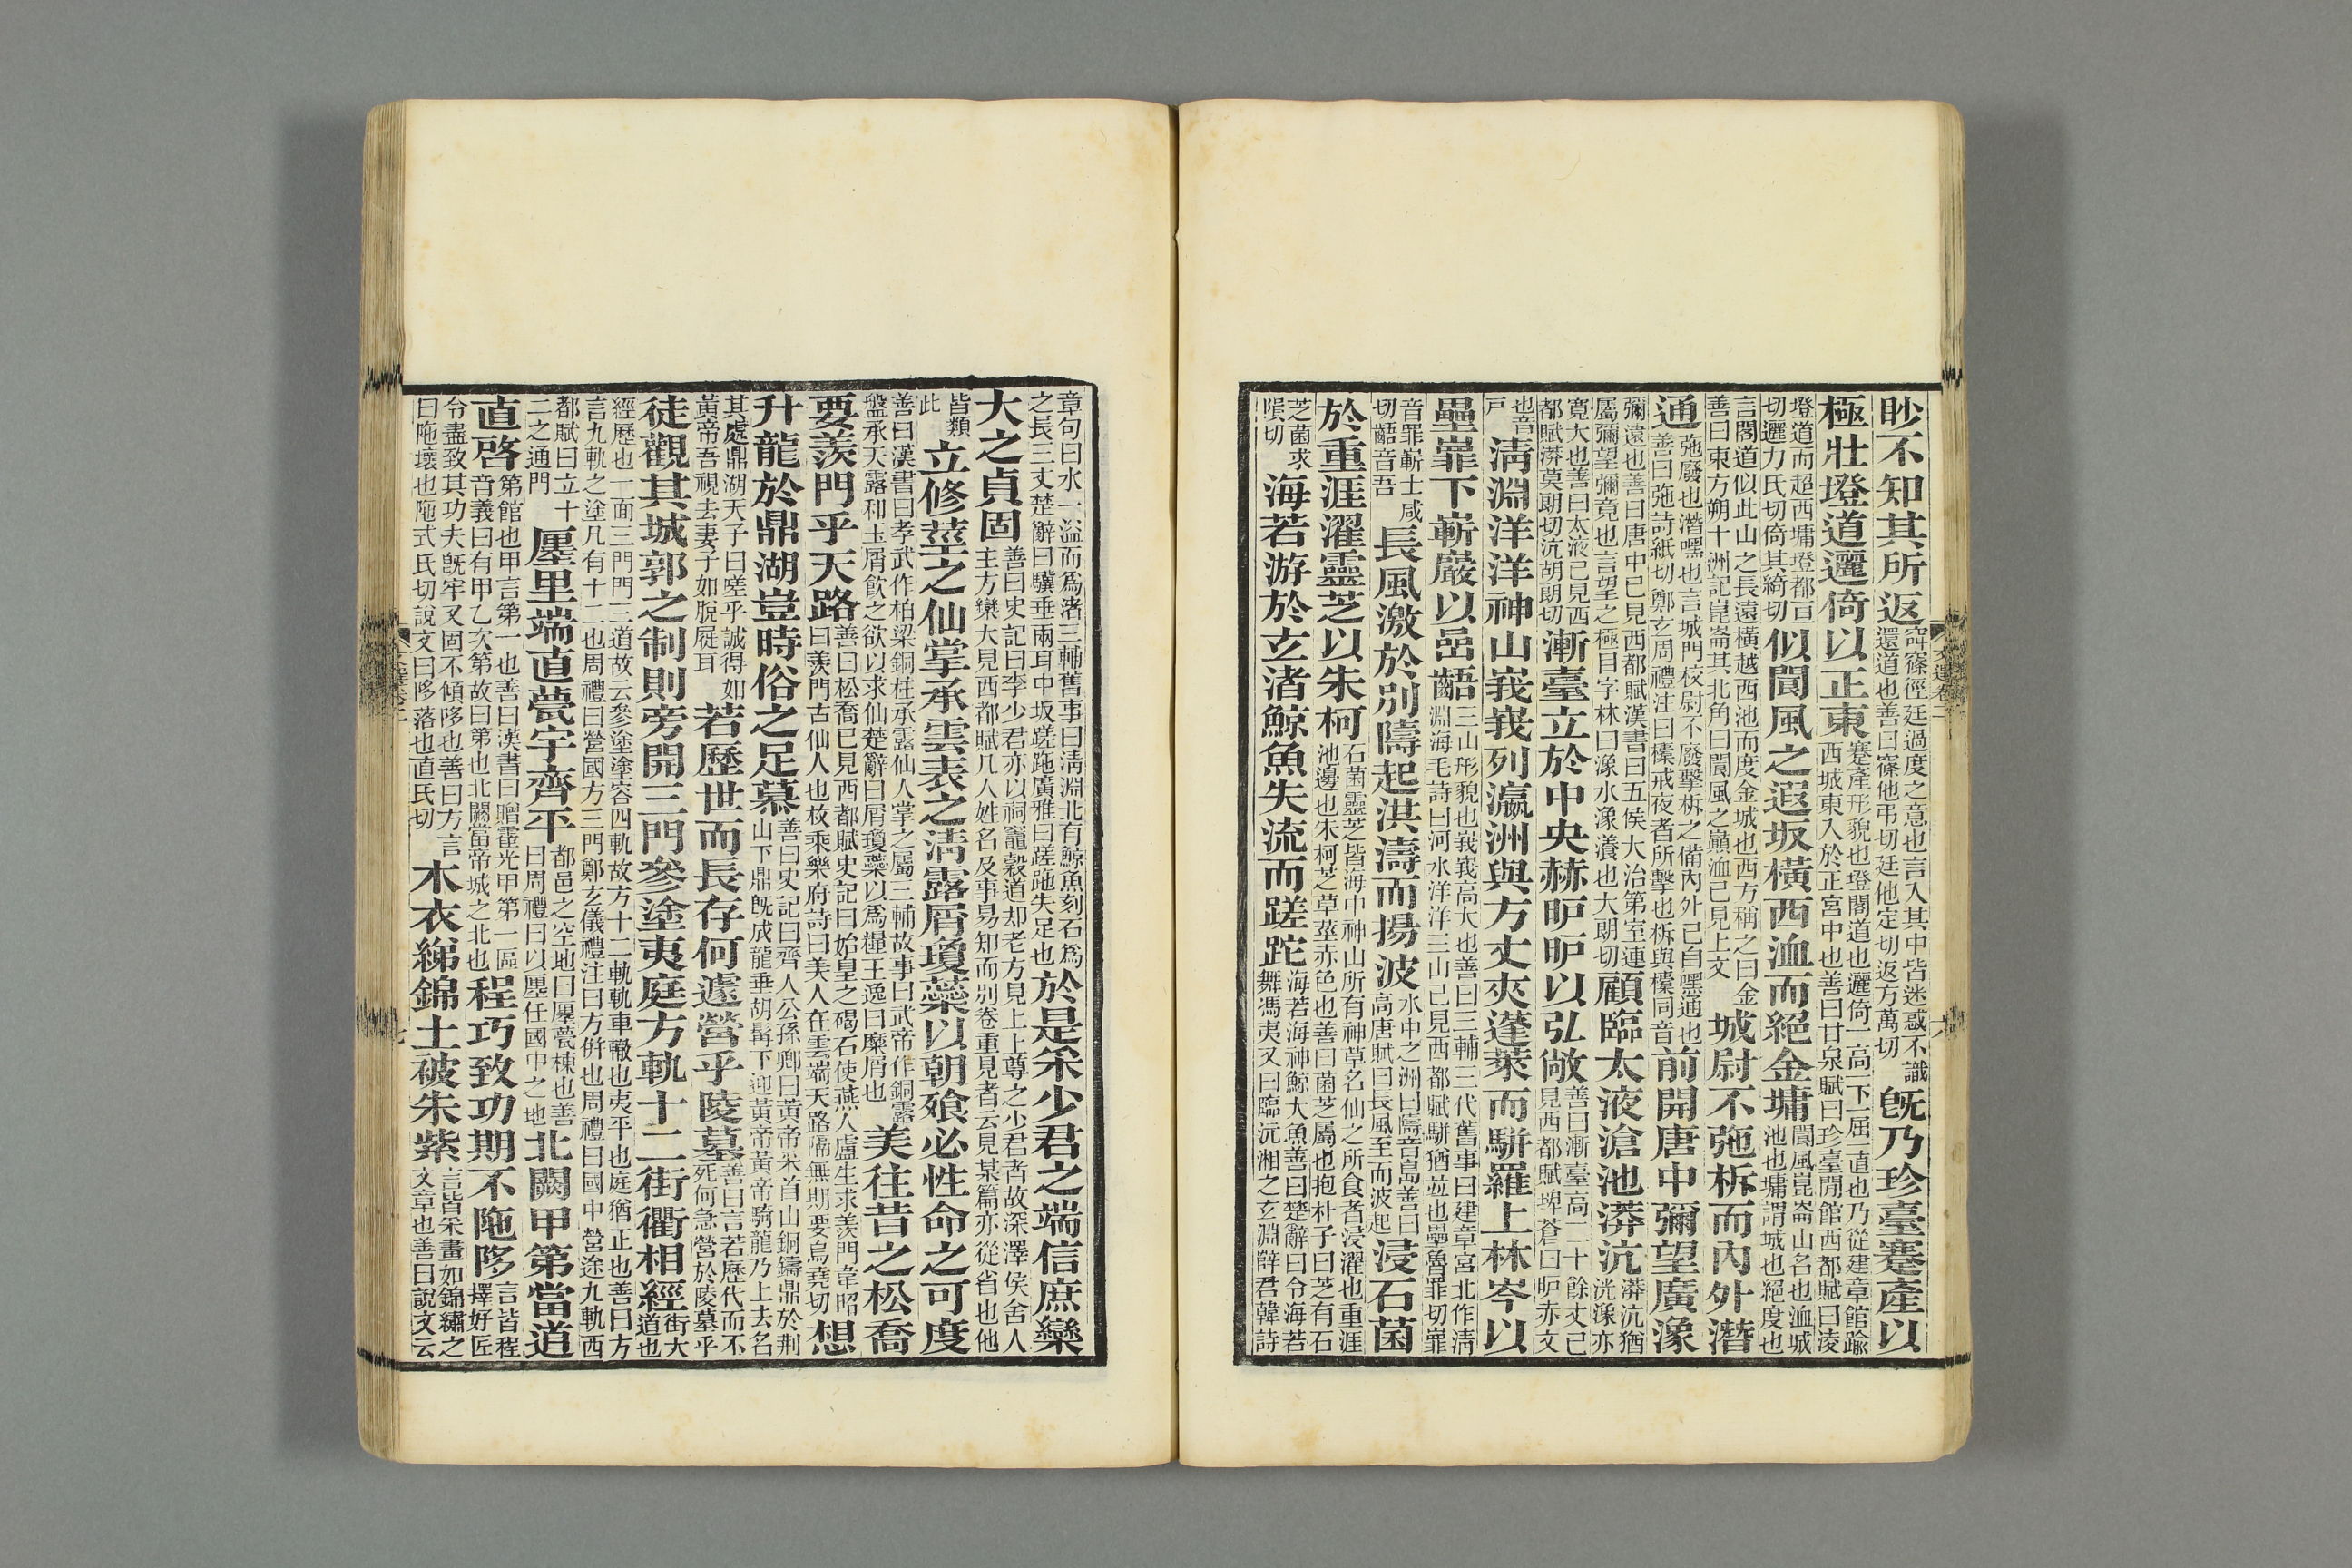 眇不知其所返窱徑廷過度之意也言入其中皆迷惑不識還道也善曰窱他弔切廷他定切返方萬切旣乃珍臺蹇產以
極壯墱道邐倚以正東蹇產形貌也墱閣道也邐倚一高一下一屈一直也乃從建章館踰西城東入於正宮中也善曰甘泉賦曰珍臺閒館西都賦曰凌
墱道而超西墉墱都亘切邐力氏切倚其綺切似閬風之遐坂橫西洫而絕金墉閬風崑崙山名也洫城池也墉謂城也絕度也
言閣道似此山之長遠橫越西池而度金城也西方稱之曰金善曰東方朔十洲記崑崙其北角曰閬風之巔洫已見上文城尉不弛柝而內外潛
通弛廢也潛嘿也言城門校尉不廢擊柝之備內外已自嘿通也善曰弛詩紙切鄭玄周禮注曰㯓戒夜者所擊也柝與㯓同音前開唐中彌望廣潒
彌遠也善曰唐中已見西都賦漢書曰五侯大治第室連屬彌望彌竟也言望之極目字林曰潒水潒瀁也大朗切顧臨太液滄池漭沆漭沆猶洸潒亦
寬大也善曰太液已見西都賦漭莫朗切沆胡朗切漸臺立於中央赫昈昈以弘敞善曰漸臺高二十餘丈已見西都賦埤蒼曰昈赤文
也音戶淸淵洋洋神山峩峩列瀛洲與方丈夾蓬萊而騈羅上林岑以
壘嶵下嶄巖以嵒齬三山形貌也峩峩高大也善曰三輔三代舊事曰建章宮北作淸淵海毛詩曰河水洋洋三山已見西都賦騈猶並也壘魯罪切嶵
音罪嶄士咸切齬音吾長風激於別隯起洪濤而揚波水中之洲曰隯音島善曰高唐賦曰長風至而波起浸石菌
於重涯濯靈芝以朱柯石菌靈芝皆海中神山所有神草名仙之所食者浸濯也重涯池邊也朱柯芝草莖赤色也善曰菌芝屬也抱朴子曰芝有石
芝菌求隕切海若游於玄渚鯨魚失流而蹉跎海若海神鯨大魚善曰楚辭曰令海若舞馮夷又曰臨沅湘之玄淵薛君韓詩
章句曰水一溢而爲渚三輔舊事曰淸淵北有鯨魚刻石爲之長三丈楚辭曰驥垂兩耳中坂蹉跎廣雅曰蹉跎失足也於是采少君之端信庶欒
大之貞固善曰史記曰李少君亦以祠竈穀道却老方見上上尊之少君者故深澤侯舍人主方欒大見西都賦凡人姓名及事易知而別卷重見者云見某篇亦從省也他
皆類此立修莖之仙掌承雲表之淸露屑瓊蘂以朝飱必性命之可度
善曰漢書曰孝武作柏梁銅柱承露仙人掌之屬三輔故事曰武帝作銅露盤承天露和玉屑飮之欲以求仙楚辭曰屑瓊蘂以爲糧王逸曰糜屑也美往昔之松喬
要羨門乎天路善曰松喬已見西都賦史記曰始皇之碣石使燕人盧生求羨門韋昭曰羨門古仙人也枚乘樂府詩曰美人在雲端天路隔無期要烏堯切想
升龍於鼎湖豈時俗之足慕善曰史記曰齊人公孫卿曰黃帝采首山銅鑄鼎於荆山下鼎旣成龍垂胡髯下迎黃帝黃帝騎龍乃上去名
其處鼎湖天子曰嗟乎誠得如黃帝吾視去妻子如脫屣耳若歷世而長存何遽營乎陵墓善曰言若歷代而不死何急營於陵墓乎
徒觀其城郭之制則旁開三門參塗夷庭方軌十二街衢相經街大道也
經歷也一面三門門三道故云參塗塗容四軌故方十二軌軌車轍也夷平也庭猶正也善曰方言九軌之塗凡有十二也周禮曰營國方三門鄭玄儀禮注曰方併也周禮曰國中營途九軌西
都賦曰立十二之通門廛里端直甍宇齊平都邑之空地曰廛甍棟也善曰周禮曰以廛任國中之地北闕甲第當道
直啓第館也甲言第一也善曰漢書曰贈霍光甲第一區音義曰有甲乙次第故曰第也北闕當帝城之北也程巧致功期不陁陊言皆程擇好匠
令盡致其功夫旣牢又固不傾陊也善曰方言曰陁壞也陁式氏切說文曰陊落也直氏切木衣綈錦土被朱紫言皆采畫如錦繡之文章也善曰說文云